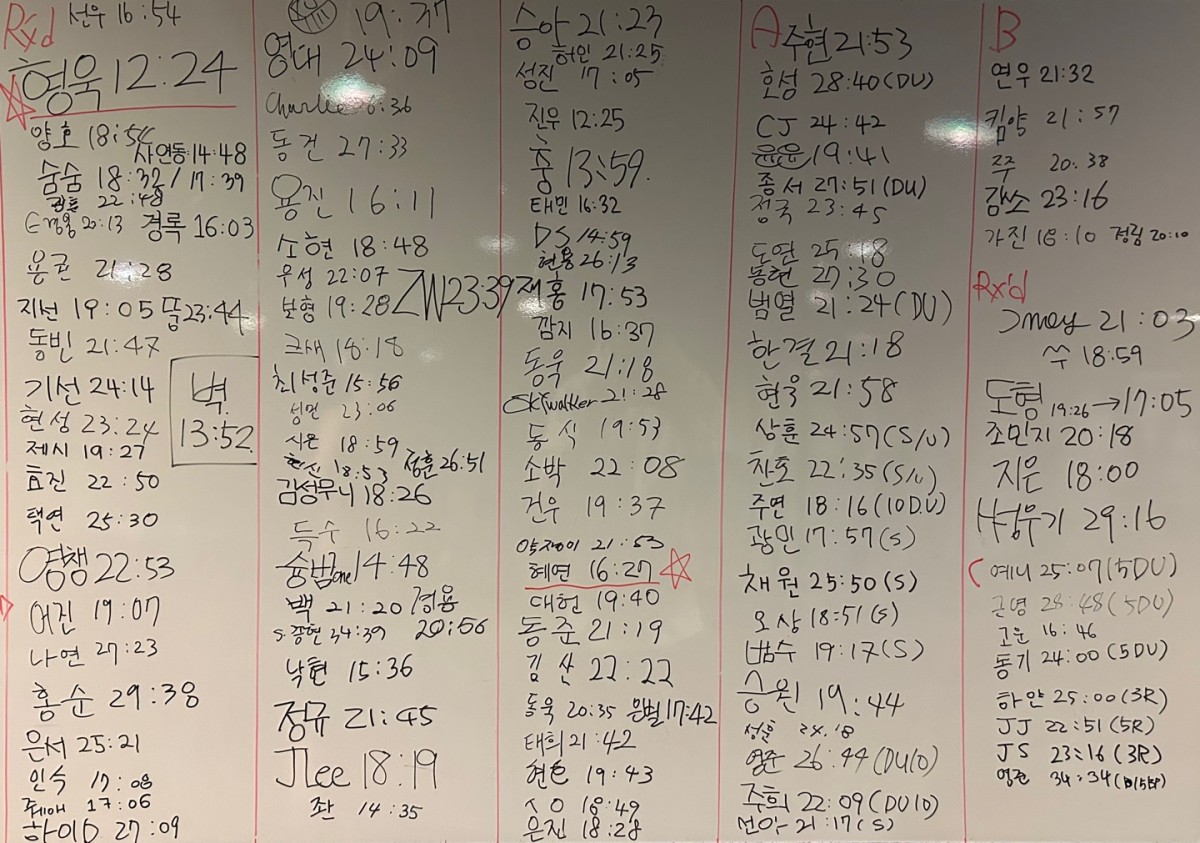 Rx'd 선우 16:54
형욱 12:24
양호 18:54
사연동 14:48
숨숨 18:32 / 17:39
22:48
20:13 경록 16:03
용권 21:28
지선 19:05 뚬 23:44
동빈 21:47
기선 24:14
현성 23:24
벽.
13:52
제시 19:27
효진 22:50
택연 25:30
영챙 22:53
어진 19:07
나연 27:23
홍순 29:38
은서 25:21
인숙 17:08
17:06
하이 27:09
19:37
영대 24:09
Charlie 16:36
동건 27:33
용진 16:11
소현 18:48
우성 22:07
보형 19:28 ZW 23:39
크새 18:18
최성준 15:56
성연 23:06
시은 18:59
현신 18:53 정훈 26:51
김성우니 18:26
득수 16:22
숭범one 14:48
백 21:20 경용 20:56
S 종현 34:39
낙현 15:36
정규 21:45
JLee 18:19
좐 14:35
승아 21:23
허인 21:25
성진 17:05
진우 12:25
훙 13:59.
태민 16:32
DS 14:59
현용 26:13
재홍 17:53
깜지 16:37
동욱 21:18
SKYwalker 21:28
동식 19:53
소박 22:08
건우 19:37
21:53
혜연 16:27
대헌 19:40
동준 21:19
김산 22:22
동욱 20:35 은별 17:42
태희 21:42
현호 19:43
ㅅㅇ 18:49
은진 18:28
A 주현 21:53
호성 28:40 (DU)
CJ 24:42
윤윤 19:41
종서 27:51 (DU)
정국 23:45
도연 25:18
동현 27:30
범열 21:24 (DU)
한결 21:18
현욱 21:58
상훈 24:57 (S/U)
찬호 22:35 (S/U)
주연 18:16 (10DU)
광민 17:57 (S)
채원 25:50 (S)
오상 18:51 (S)
범수 19:17 (S)
승원 19:44
성훈 24.18
영준 26:44 (DU10)
주희 22:09 (DU10)
선아 21:17 (S)
B
연우 21:32
킴양 21:57
주주 20:38
감소 23:16
가진 18:10 정림 20:10
Rx'd
Jmay 21:03
쑤 18:59
도형 19:26 → 17:05
조민지 20:18
지은 18:00
H정우기 29:16
예니 25:07 (5DU)
근영 28:48 (5DU)
고운 16:46
동기 24:00 (5DU)
하얀 25:00 (3R)
JJ 22:51 (5R)
JS 23:16 (3R)
영준 34:34